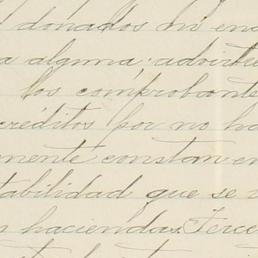 donados ni en
a alguna; advirti
los comprobante
créditos por no ha
mente constan en
tabilidad que se
n haciendas. Terce